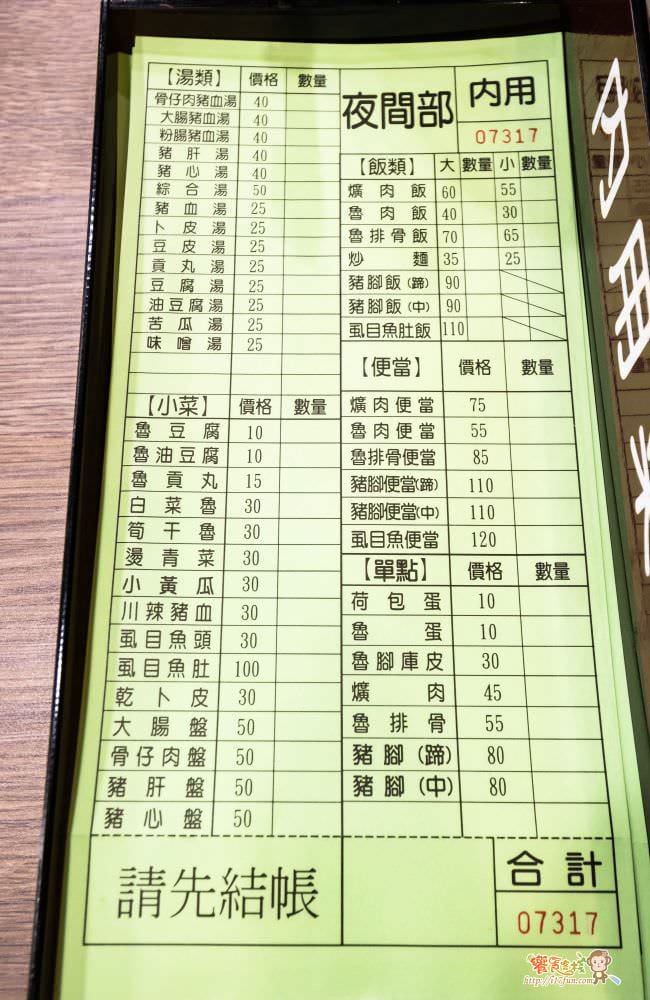 【湯類】 價格 數量
骨仔肉豬血湯 40
大腸豬血湯 40
粉腸豬血湯 40
豬肝湯 40
豬心湯 40
綜合湯 50
豬血湯 25
卜皮湯 25
豆皮湯 25
貢丸湯 25
豆腐湯 25
油豆腐湯 25
苦瓜湯 25
味噌湯 25
【小菜】 價格 數量
魯豆腐 10
魯油豆腐 10
魯貢丸 15
白菜魯 30
筍干魯 30
燙青菜 30
小黃瓜 30
川辣豬血 30
虱目魚頭 30
虱目魚肚 100
乾卜皮 30
大腸盤 50
骨仔肉盤 50
豬肝盤 50
豬心盤 50
夜間部 內用
07317
【飯類】 大 數量 小 數量
爌肉飯 60 55
魯肉飯 40 30
魯排骨飯 70 65
炒麵 35 25
豬腳飯(蹄) 90
豬腳飯(中) 90
虱目魚肚飯 110
【便當】 價格 數量
爌肉便當 75
魯肉便當 55
魯排骨便當 85
豬腳便當(蹄) 110
豬腳便當(中) 110
虱目魚便當 120
【單點】 價格 數量
荷包蛋 10
魯蛋 10
魯腳庫皮 30
爌肉 45
魯排骨 55
豬腳(蹄) 80
豬腳(中) 80
請先結帳
合計
07317
http://ik3fun.com/